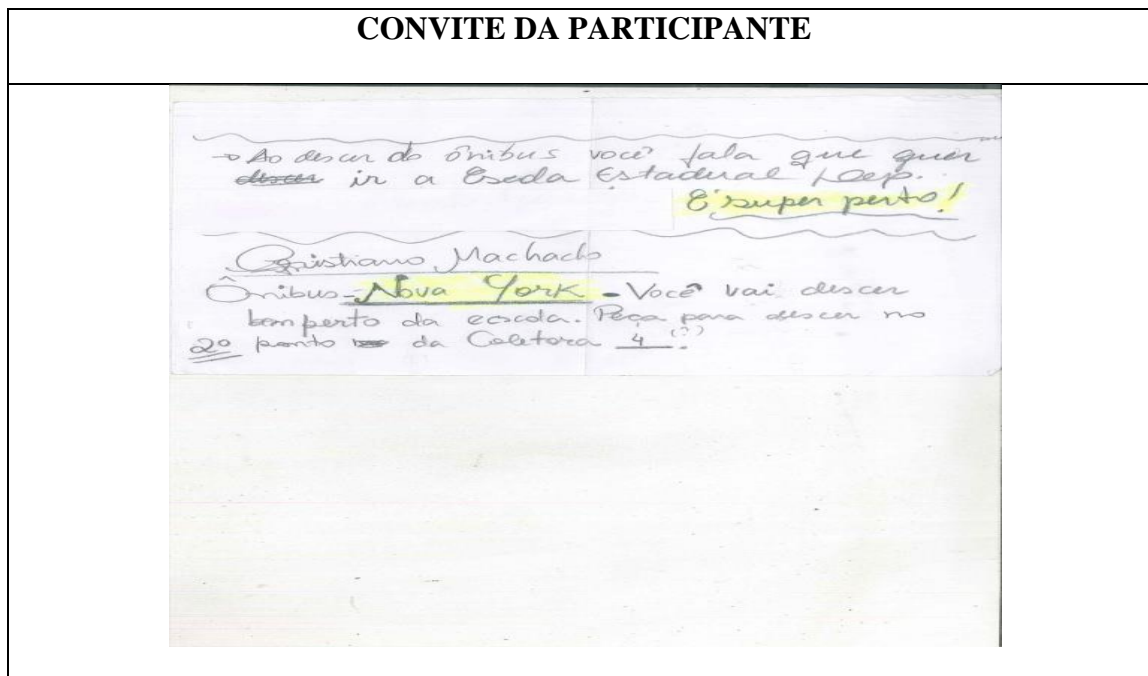 CONVITE DA PARTICIPANTE
→ Ao descer do ônibus você fala que quer
descer ir a Escola Estadual Dep.
É super perto!
Cristiano Machado
Ônibus - Nova York - Você vai descer
bem perto da escola. Peça para descer no
2º ponto da Coletora 4 (?).